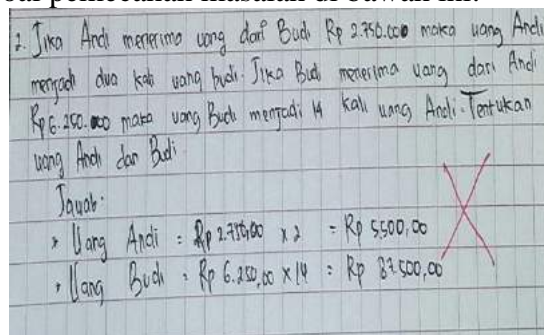 soal pemecahan masalah di bawah ini:
2. Jika Andi menerima uang dari Budi Rp 2.750.000 maka uang Andi
menjadi dua kali uang budi. Jika Budi menerima uang dari Andi
Rp 6.250.000 maka uang Budi menjadi 14 kali uang Andi. Tentukan
uang Andi dan Budi
Jawab:
* Uang Andi = Rp 2.750,00 x 2 = Rp 5500,00
* Uang Budi = Rp 6.250,00 x 14 = Rp 87.500,00